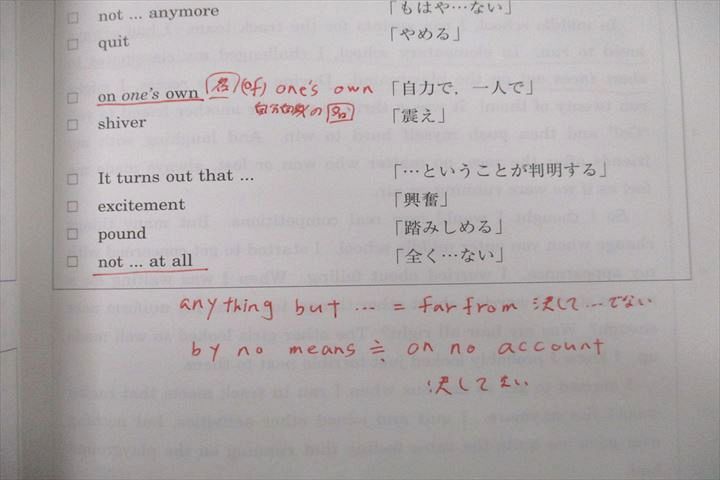 □ not ... anymore 「もはや…ない」
□ quit 「やめる」
□ on one's own 名 (of) one's own 「自力で，一人で」
自分自身の 名
□ shiver 「震え」
□ It turns out that ... 「…ということが判明する」
□ excitement 「興奮」
□ pound 「踏みしめる」
□ not ... at all 「全く…ない」
anything but … = far from 決して…でない
by no means ≒ on no account
決してない